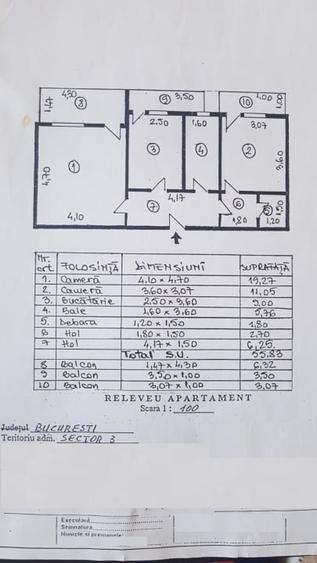 4,30
1,47
8
9
3,50
10
4,00
1,00
2,50
1,60
3,07
1
3
4
2
4,70
3,60
4,10
7
4,17
6
1,80
5
1,20
1,50
Nr. crt FOLOSINȚĂ DIMENSIUNI SUPRAFAȚĂ
1. Cameră 4,10 x 4,70 19,27
2. Cameră 3,60 x 3,07 11,05
3. Bucătărie 2,50 x 3,60 9,00
4. Baie 1,60 x 3,60 5,76
5. Debara 1,20 x 1,50 1,80
6 Hol 1,80 x 1,50 2,70
7 Hol 4,17 x 1,50 6,25
Total S.U. 55,83
8 Balcon 1,47 x 4,30 6,32
9 Balcon 3,50 x 1,00 3,50
10 Balcon 3,07 x 1,00 3,07
RELEVEU APARTAMENT
Scara 1 : 100
Județul BUCUREȘTI
Teritoriu adm. SECTOR 3
Executant
Semnatura
Numele si prenumele